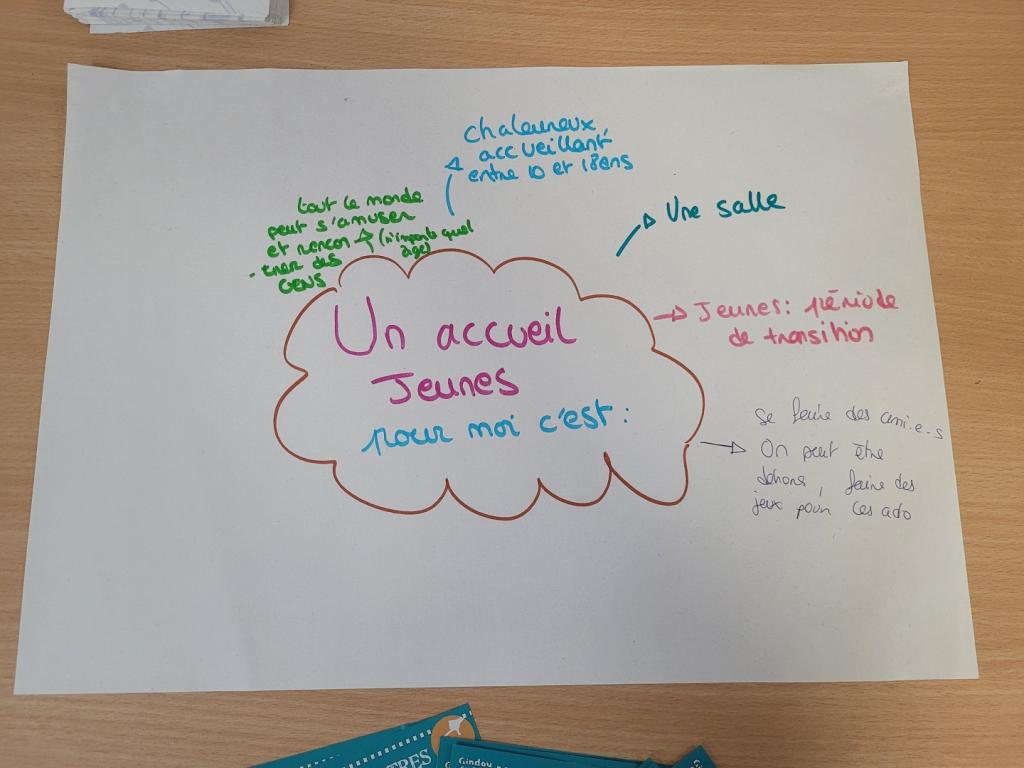 chaleureux,
accueillant,
entre 10 et 18ans
tout le monde
peut s'amuser
et rencon
-trer des
GENS
(n'importe quel
âge)
Une salle
Jeunes: période
de transition
Un accueil
Jeunes
pour moi c'est :
se faire des ami.e.s
On peut être
dehors, faire des
jeux pour les ado
TRES
Gindou